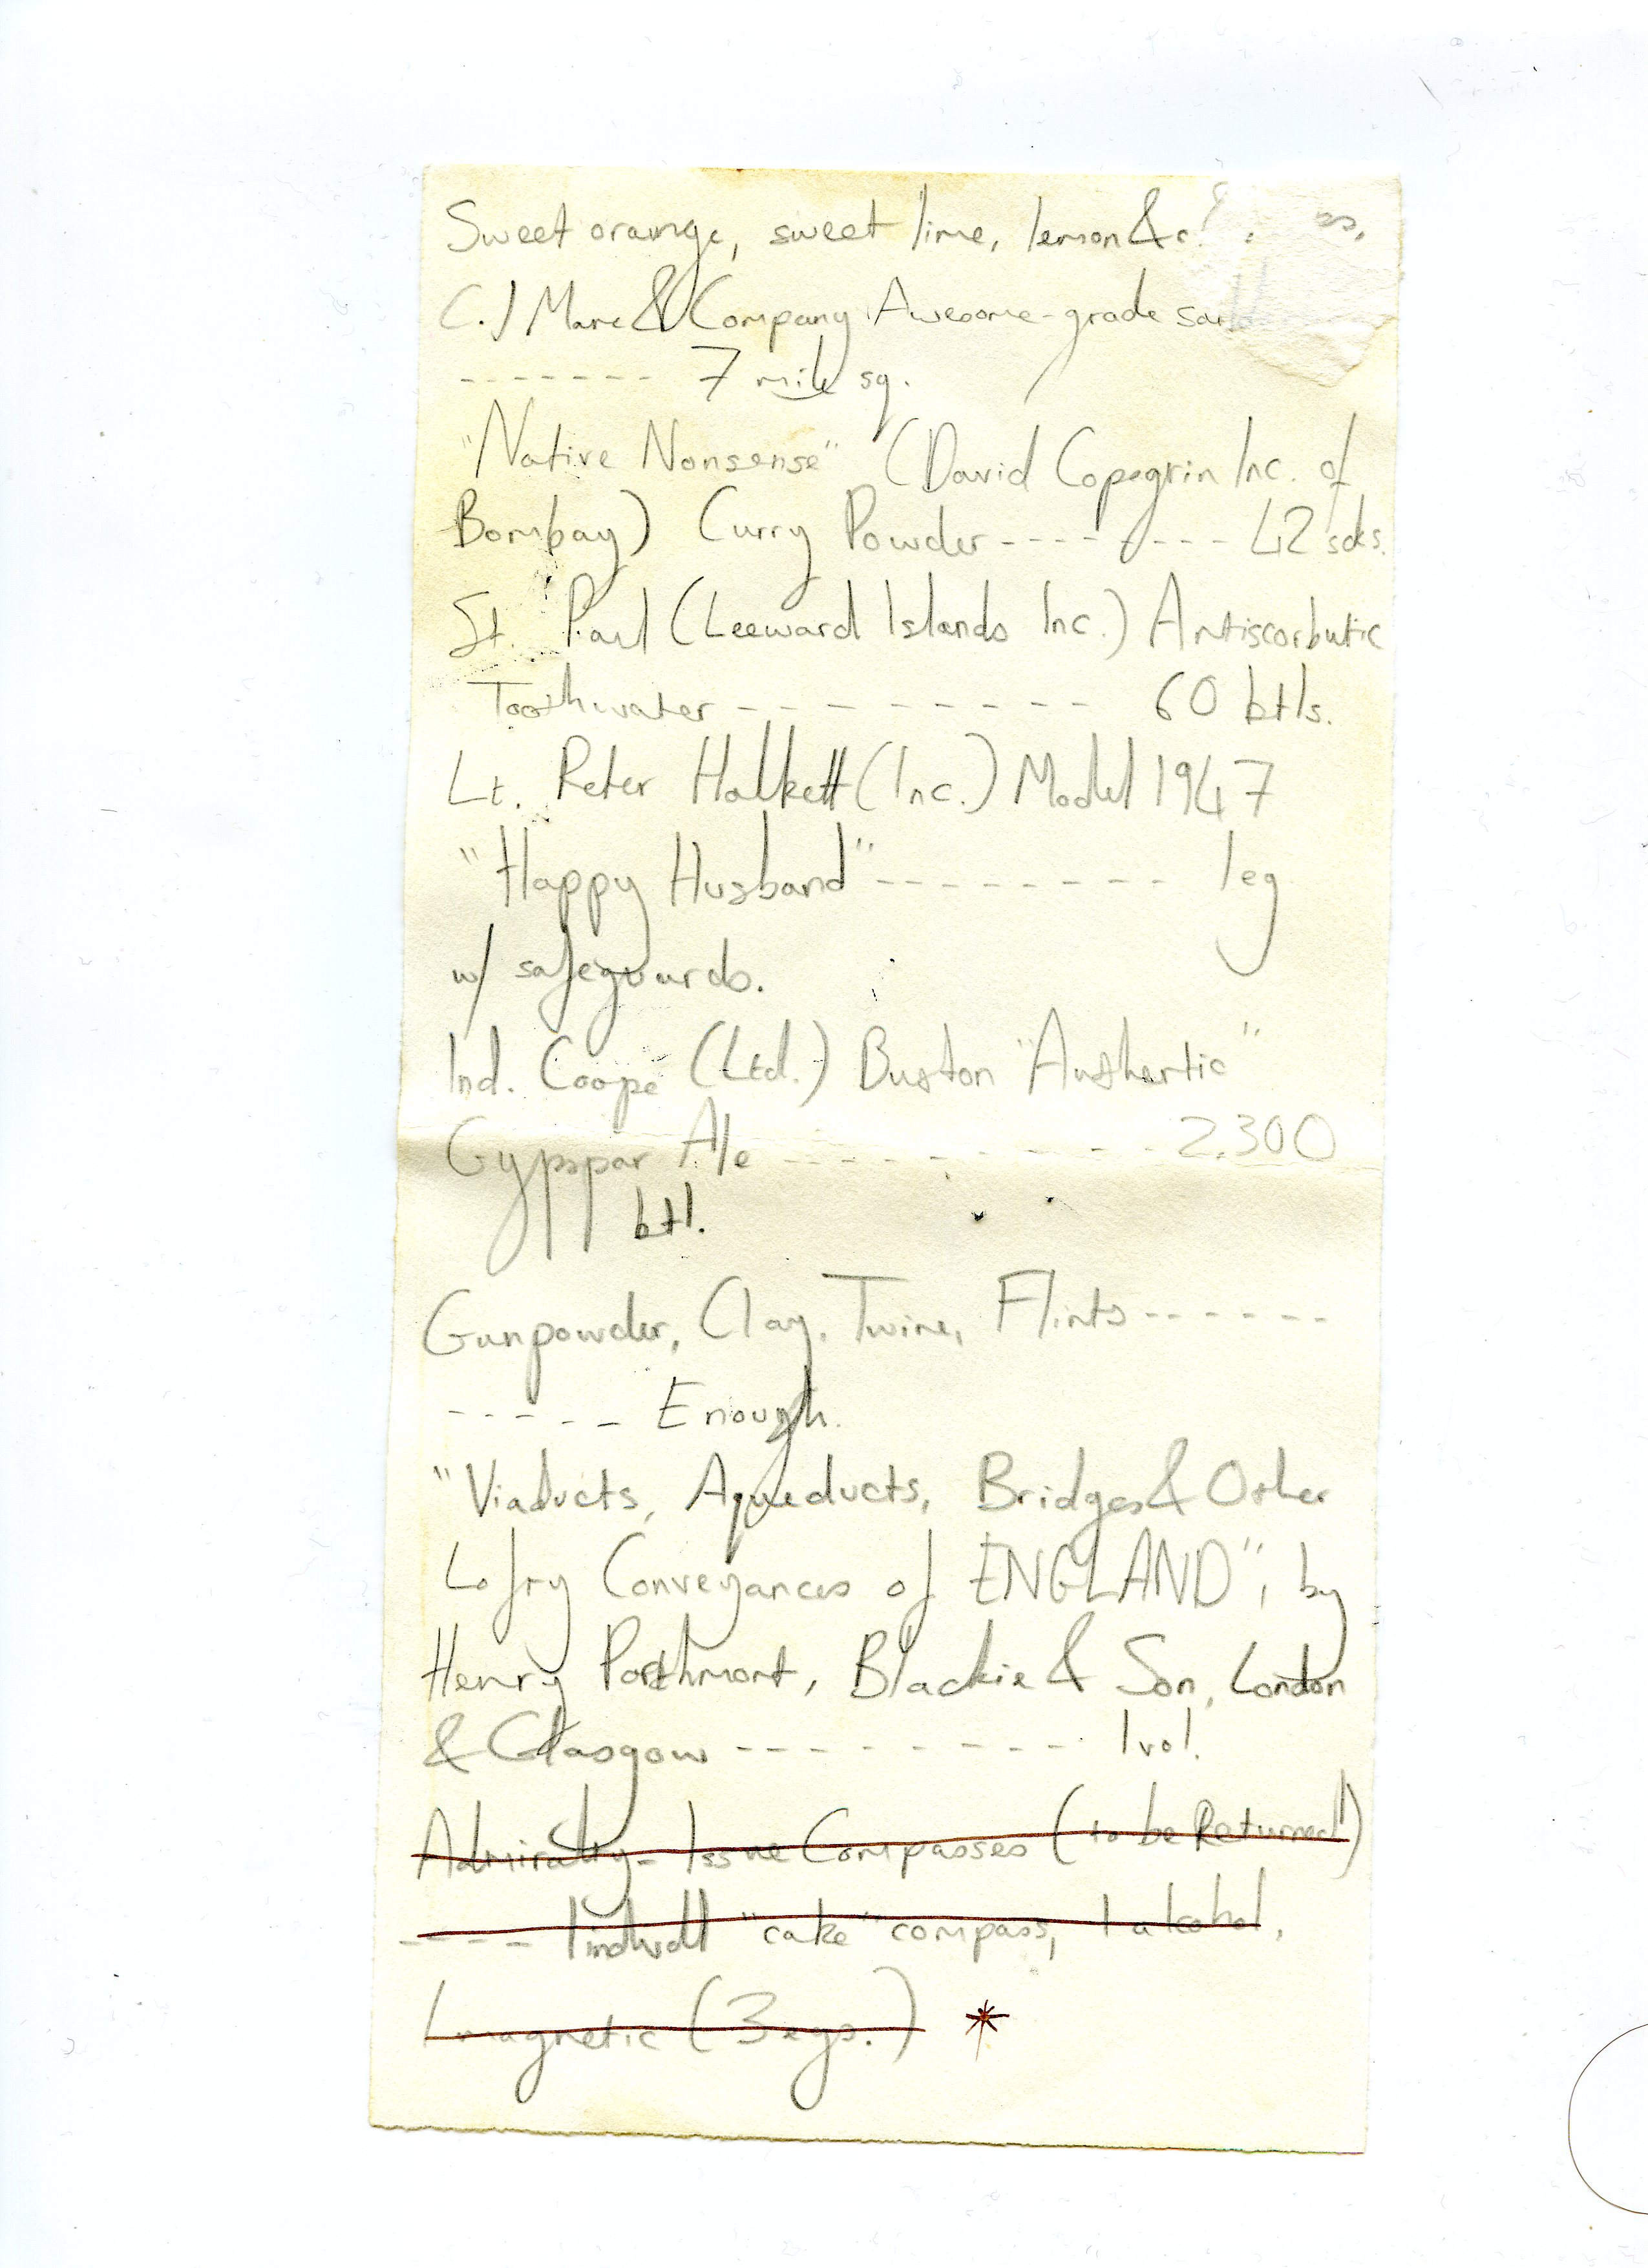 Sweet orange, sweet lime, lemon &c.
C.J Mare & Company Awesome-grade
------- 7 mile sq.
"Native Nonsense" (David Copegrin Inc. of
Bombay) Curry Powder -------- 42 scks.
St. Paul (Leeward Islands Inc.) Antiscorbutic
Toothwater --------- 60 btls.
Lt. Peter Halkett (Inc.) Model 1947
"Happy Husband" -------- 1 eg
w/ safeguards.
Ind. Coope (Ltd.) Buxton "Authentic"
Gypspar Ale --------- 2.300
btl.
Gunpowder, Clay, Twine, Flints ------
----- Enough.
"Viaducts, Aqueducts, Bridges & Other
Lofty Conveyances of ENGLAND"; by
Henry Parthmont, Blackie & Son, London
& Glasgow --------- 1 vol.
Admiralty-Issue Compasses (to be Returned!)
---- 1 "cake" compass, 1 alcohol,
1 magnetic (3 egs.) *